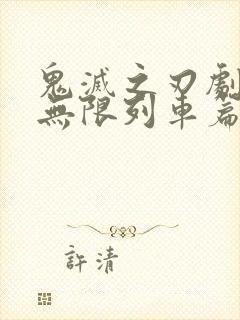 鬼滅之刃劇
無限列車篇
許清